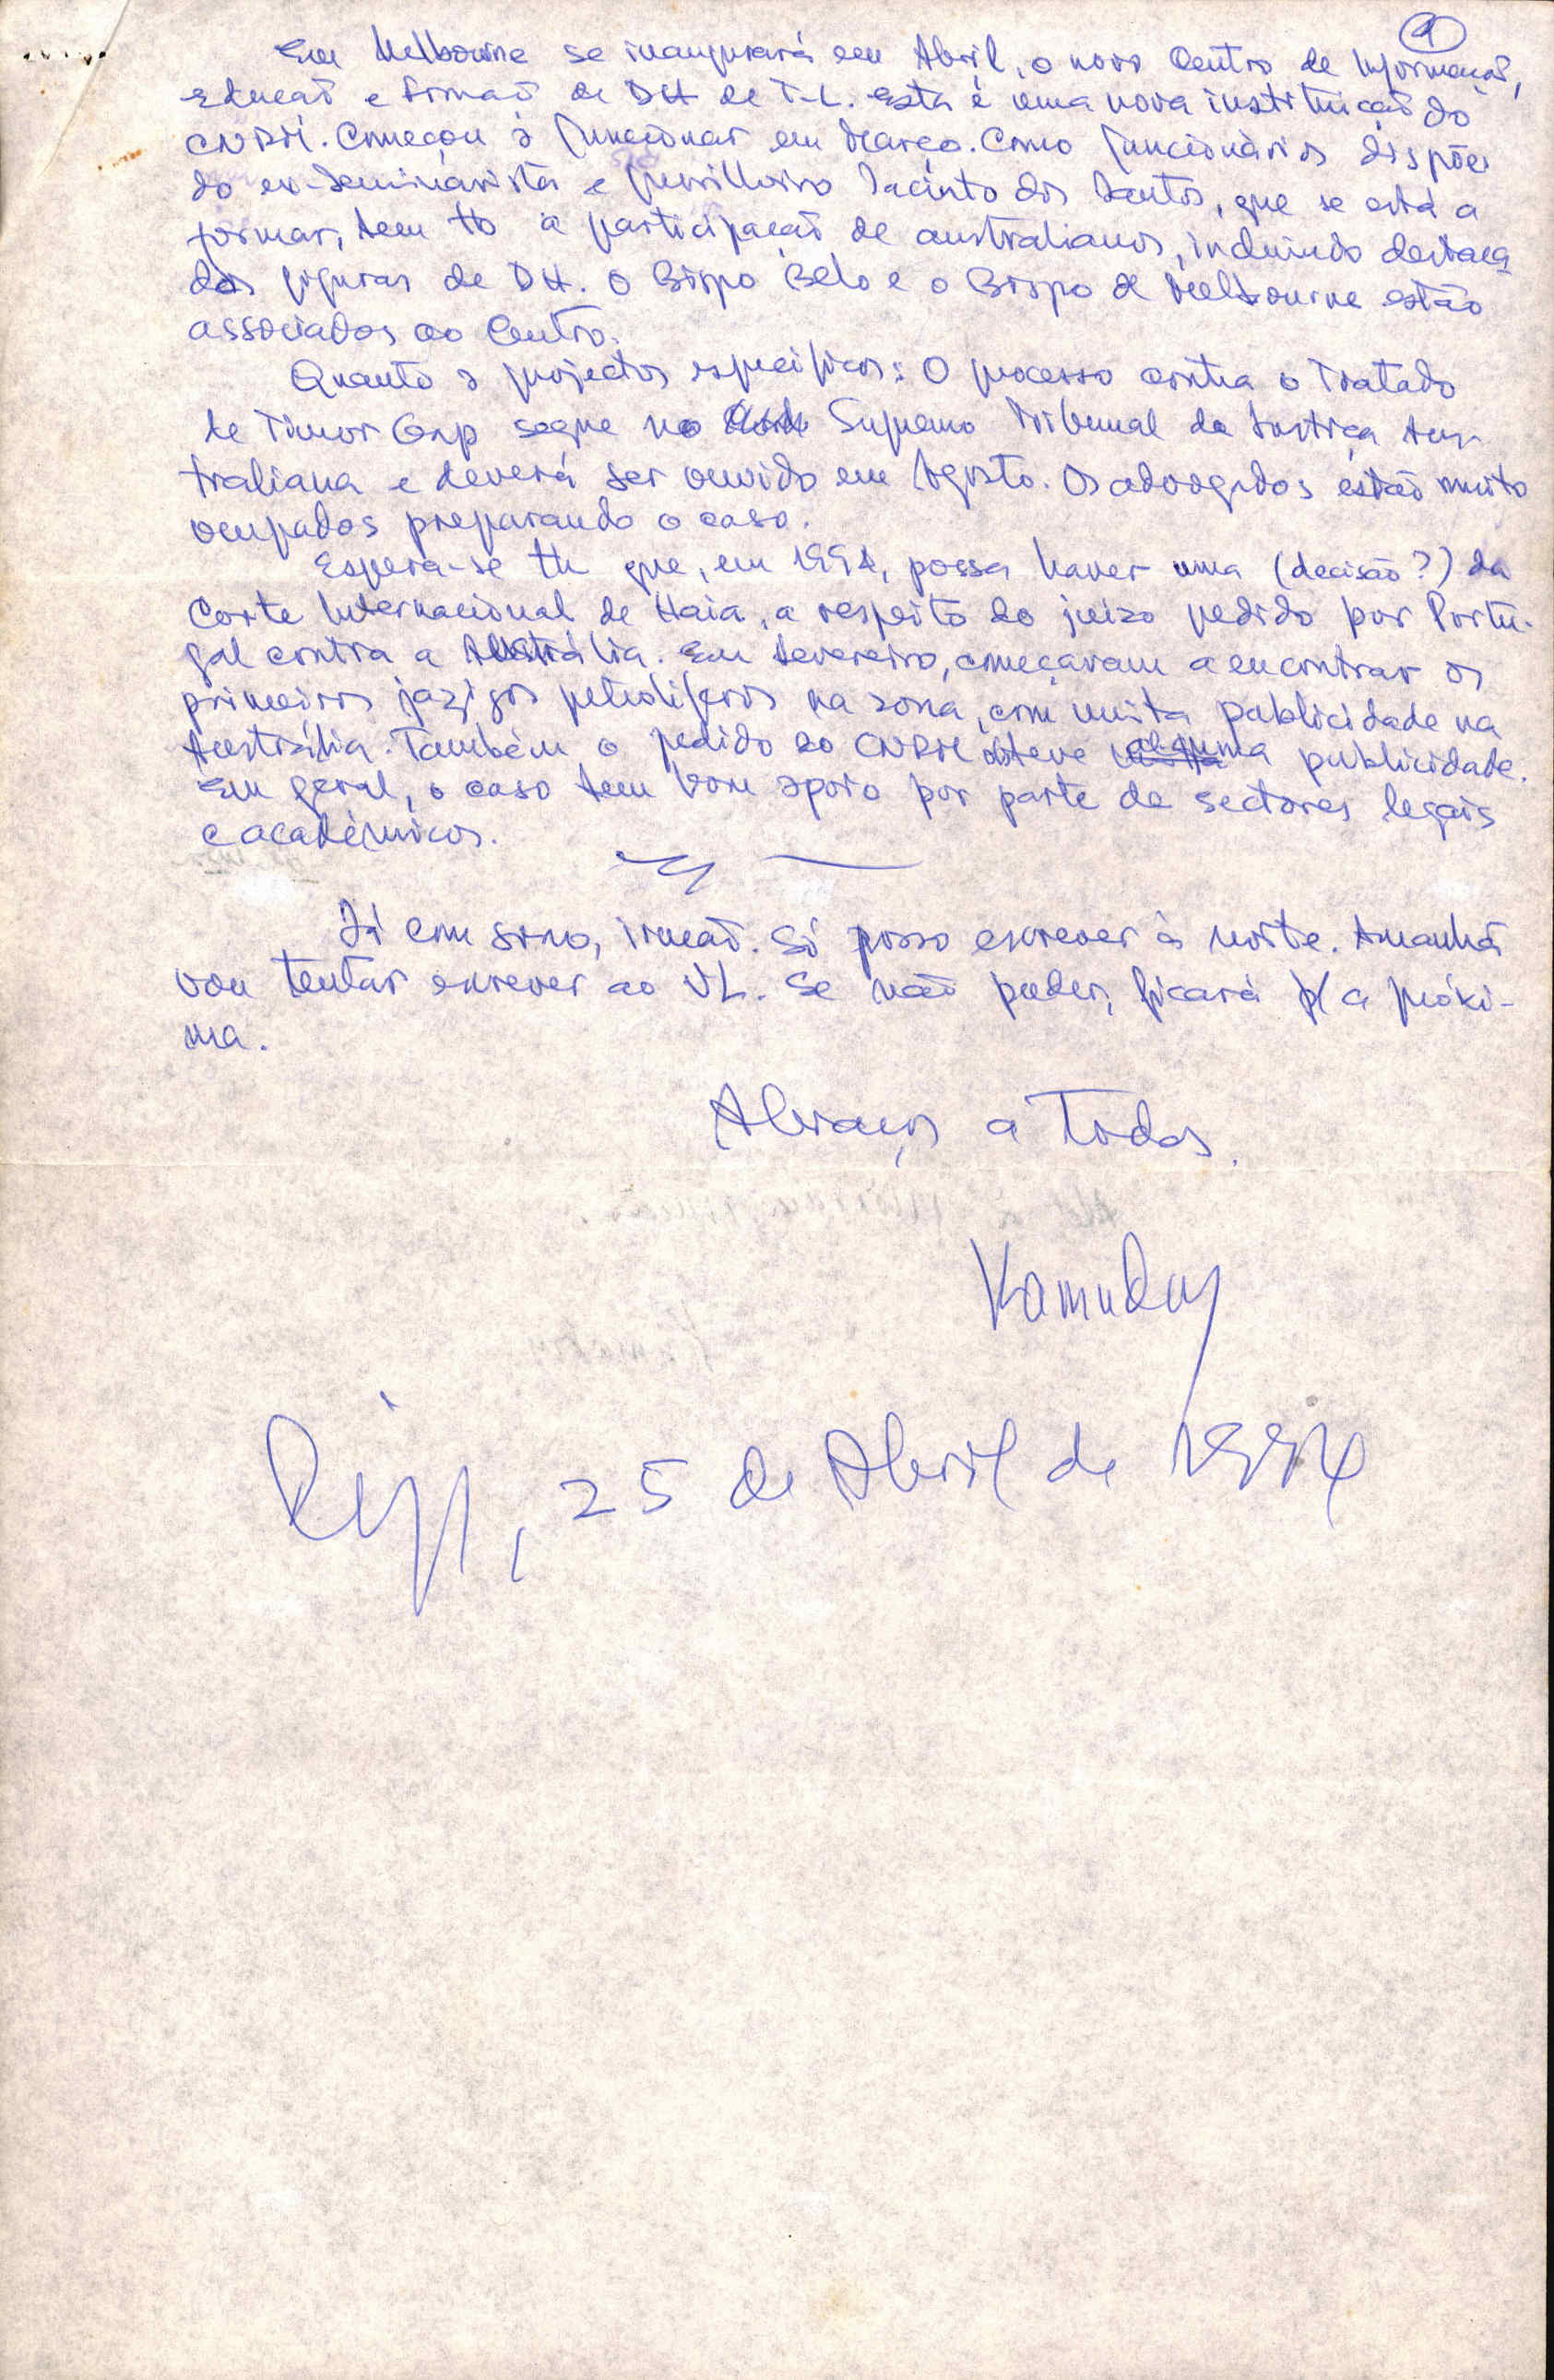 9
Em Melbourne se inaugurará em Abril, o novo Centro de Informaçaõ,
Educaçaõ e Formaçaõ de DH de T-L. Esta é uma nova instituiçaõ do
CNRM. Começou a funcionar em Março. Como funcionários dispõe
do ex-seminarista e guerrilheiro Jacinto dos Santos, que se está a
formar, tem tb a participaçaõ de australianos, incluindo destaca
das figuras de DH. O Bispo Belo e o Bispo de Melbourne estão
associados ao Centro.
Quanto a projectos específicos: O processo contra o Tratado
de Timor Gap segue no Supremo Tribunal da Justiça Aus-
traliana e deverá ser ouvido em Agosto. Os advogados estão muito
ocupados preparando o caso.
Espera-se que, em 1994, possa haver uma (decisão?) da
Corte Internacional de Haia, a respeito do juízo pedido por Portu-
gal contra a Austrália. Em Fevereiro, começaram a encontrar os
primeiros jazigos petrolíferos na zona, com muita publicidade na
Austrália. Também o pedido do CNRM obteve alguma publicidade.
Em geral, o caso tem bom apoio por parte de sectores legais
e académicos.
Já com sono, irmaõ. Só posso escrever à noite. Amanhã
vou tentar escrever ao VL. Se não puder, ficará p/ a próxi-
ma.
Abraços a Todos.
25 de Abril de 1994